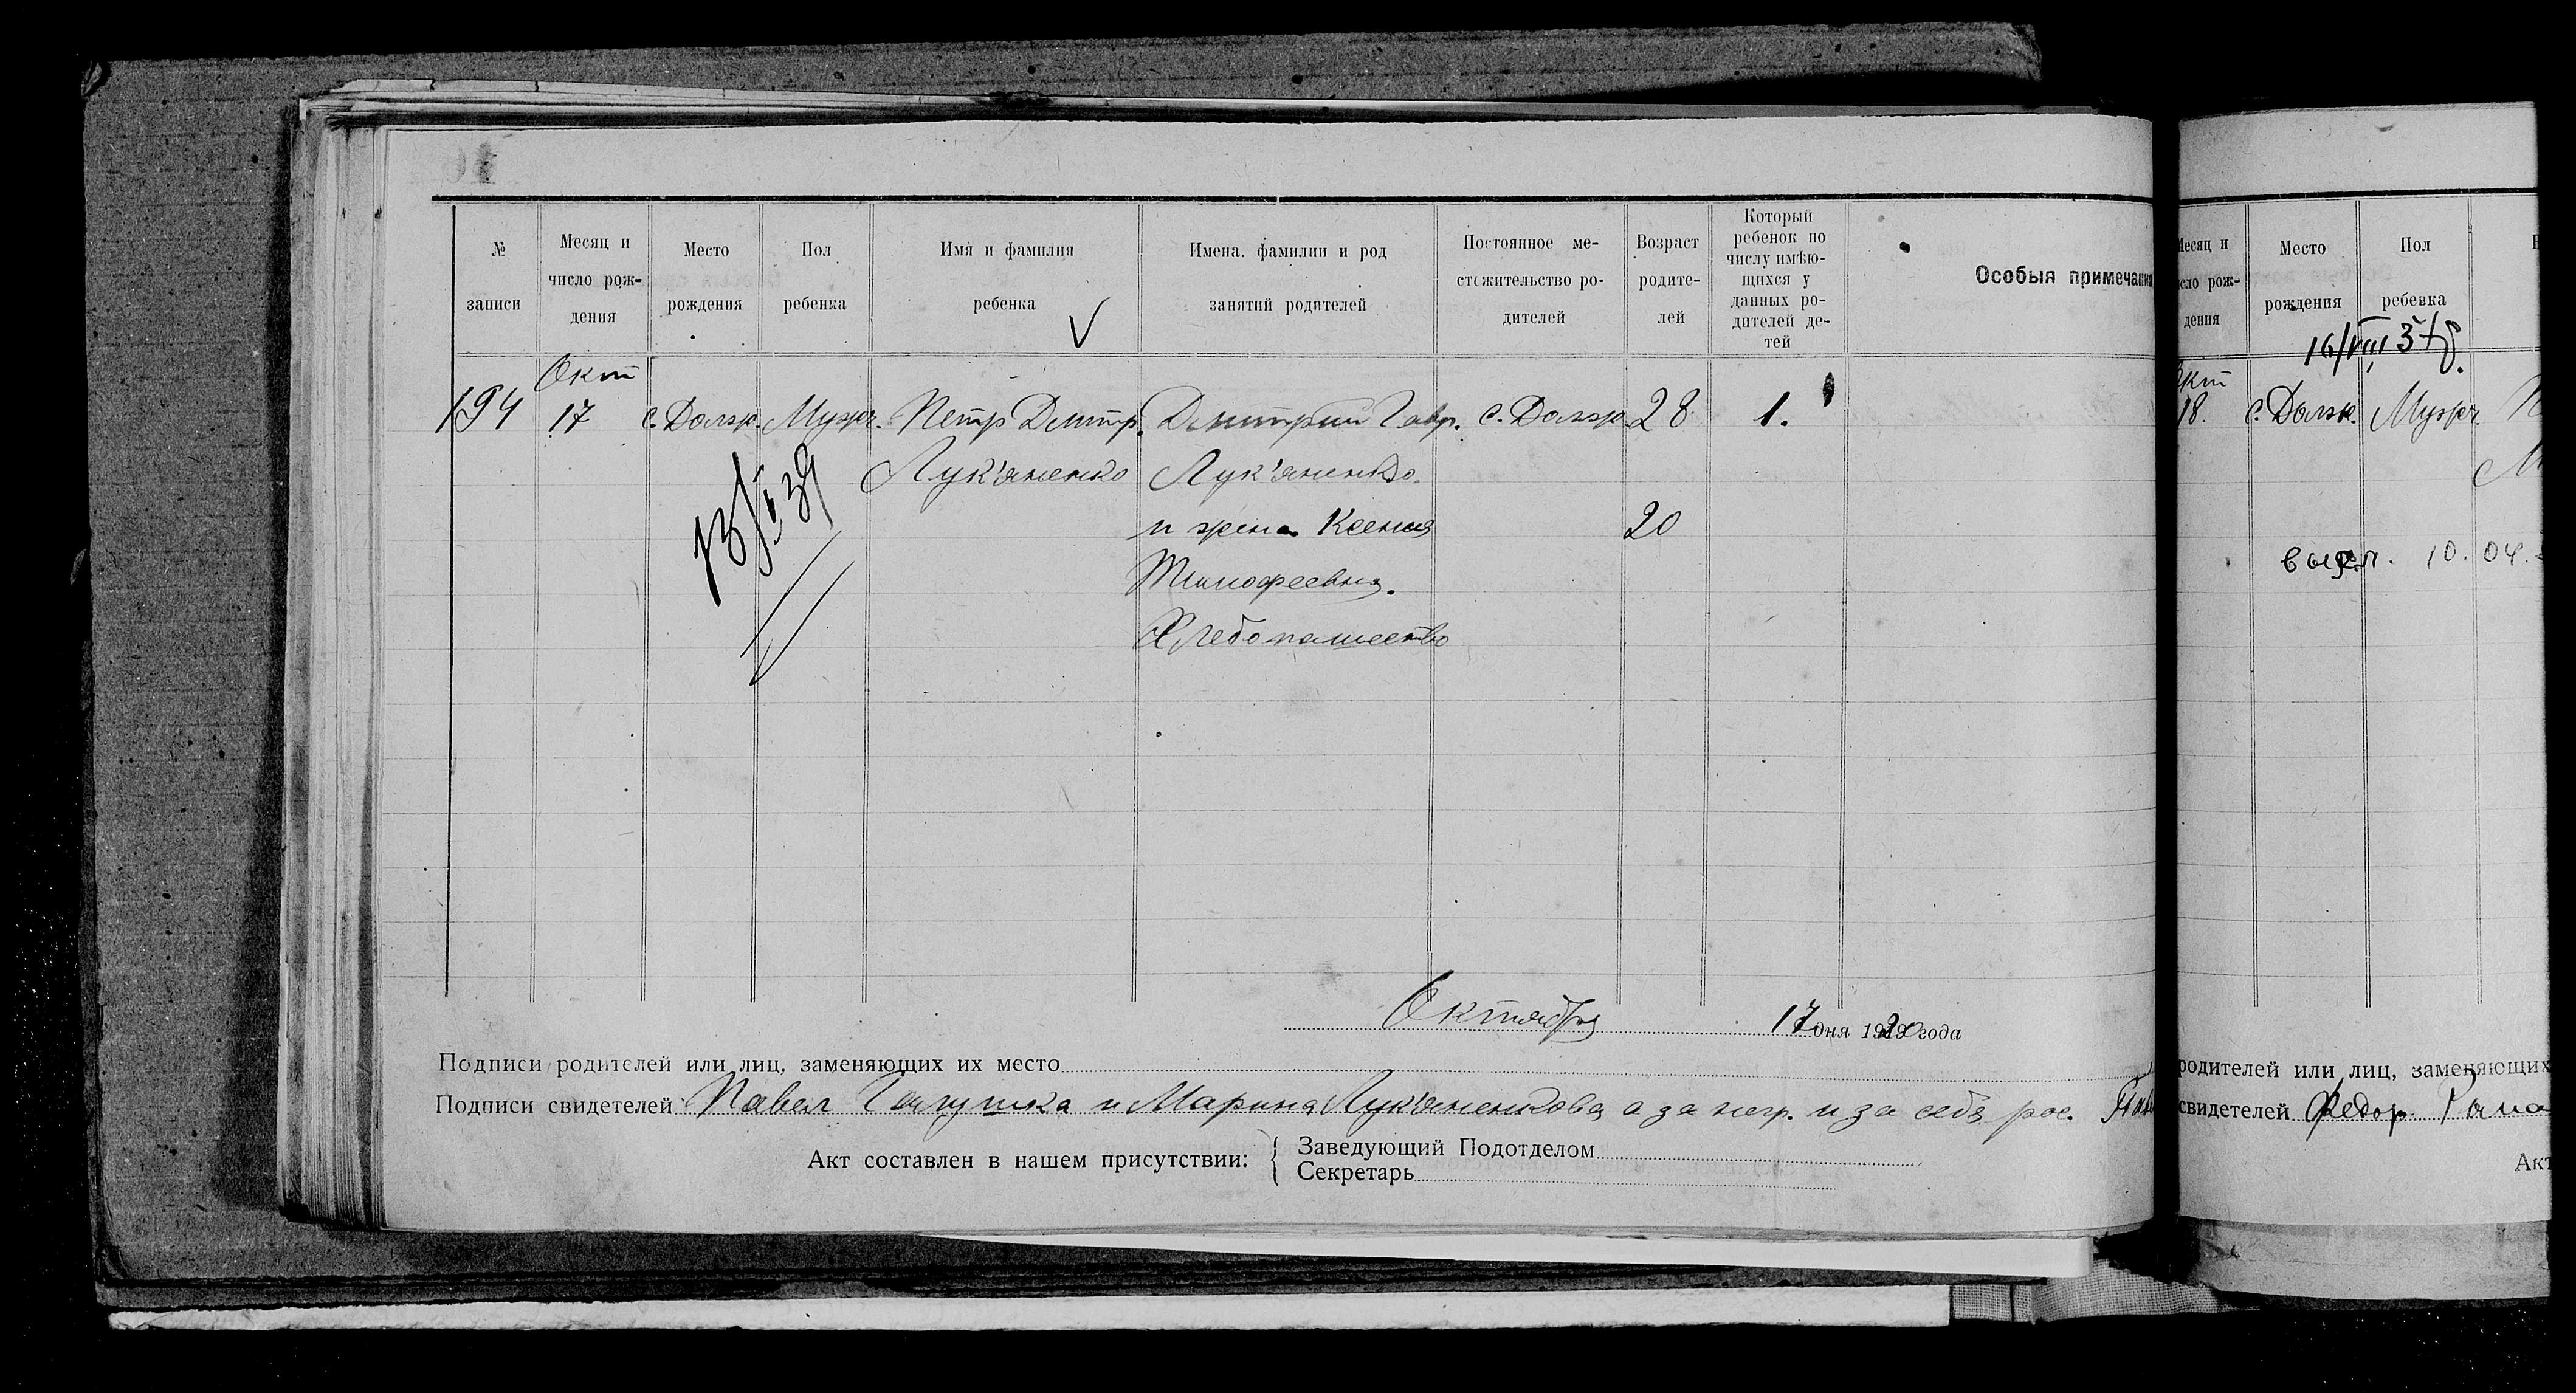 №
записи
Месяц и
число рож-
дения
Место
рождения
Пол
ребенка
Имя и фамилия
ребенка
Имена. фамилии и род
занятий родителей
Постоянное ме-
стожительство ро-
дителей
Возраст
родите-
лей
Который
ребенок по
числу имѣю-
щихся у
данных ро-
дителей де-
тей
Особыя примечания
194
Окт
17
с. Должк.
Мужч.
Петр Дмитр.
Лук'яненко
Дмитрий Гавр.
Лук'яненко.
и жена Ксения
Тимофеевна.
Хлебопашество
с. Должк.
28
20
1.
Октября 17 дня 1920 года
Подписи родителей или лиц, заменяющих их место
Подписи свидетелей Павел и Марина Лук'яненкова а за негр. и за себя рос.
Акт составлен в нашем присутствии:
Заведующий Подотделом
Секретарь
Месяц и
число рож-
дения
Место
рождения
Пол
ребенка
16/VIII
Окт
18.
с. Должк.
Мужч.
10.04.
родителей или лиц, заменяющих
свидетелей Федор
Акт